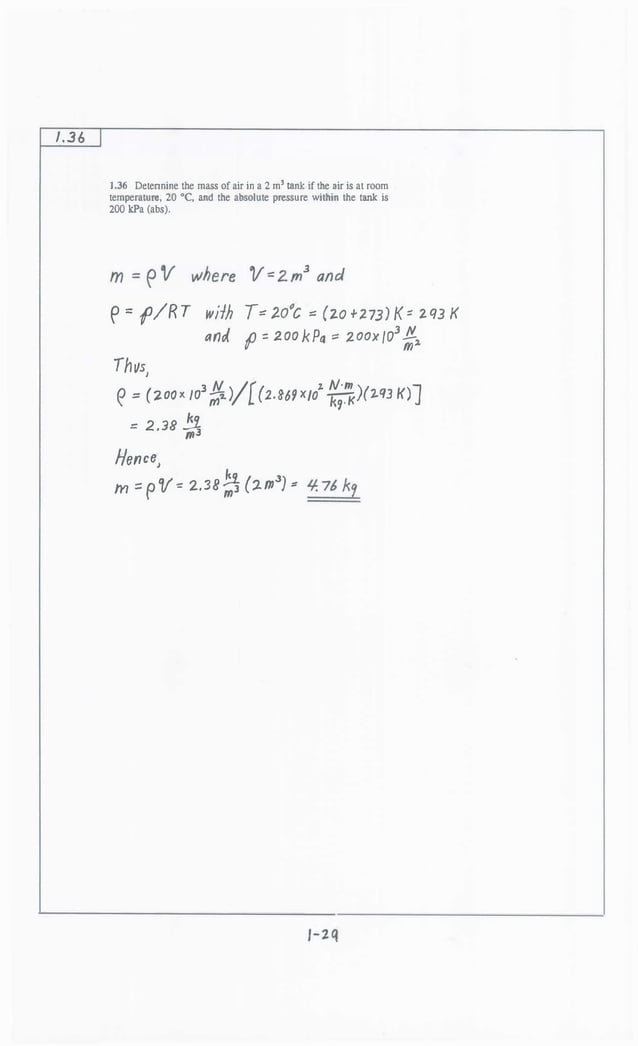 1.36
1.36 Determine the mass of air in a 2 m³ tank if the air is at room
temperature, 20 °C, and the absolute pressure within the tank is
200 kPa (abs).
m = ρV where V = 2 m³ and
ρ = p/RT with T = 20°C = (20+273) K = 293 K
and p = 200 kPa = 200x10³ N/m²
Thus,
ρ = (200 x 10³ N/m²)/[(2.869 x 10² N·m/kg·K)(293 K)]
= 2.38 kg/m³
Hence,
m = ρV = 2.38 kg/m³ (2 m³) = 4.76 kg
1-29